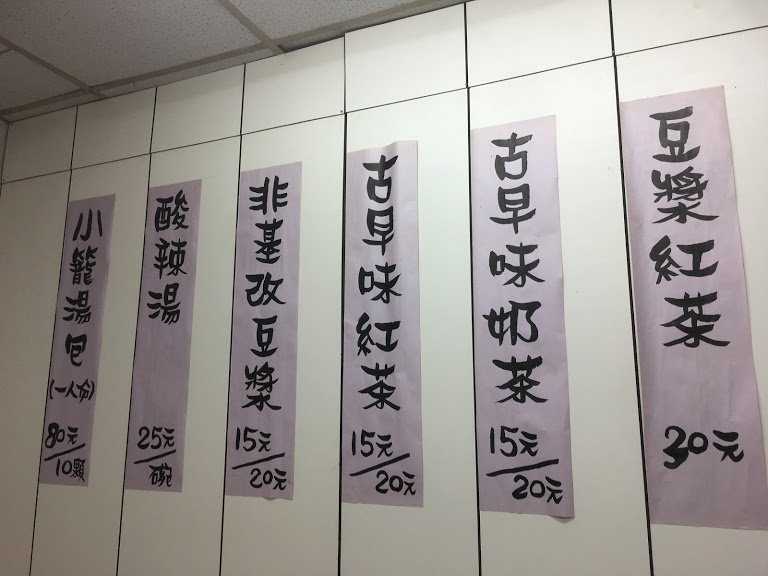 豆漿紅茶
30元
古早味奶茶
15元/20元
古早味紅茶
15元/20元
非基改豆漿
15元/20元
酸辣湯
25元/碗
小籠湯包
(一人份)
80元/10顆